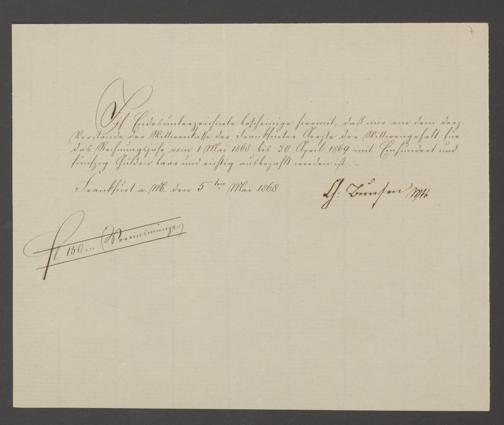 7
Ich Endesunterzeichnete bescheinige hiermit, daß mir von dem derz.
Vorstande der Wittwenkasse der Frankfurter Aerzte der Wittwengehalt für
das Rechnungsjahr vom 1 Mai 1868 bis 30 April 1869 mit Einhundert und
fünfzig Gulden baar und richtig ausbezahlt worden ist.
Frankfurt a. M. den 5ten Mai 1868
Bunsen Wwe
fl 150 (Vereinsmünze)